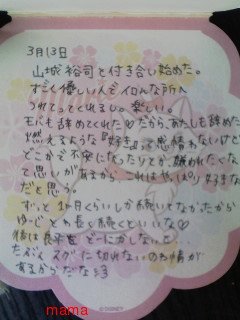 3月13日
山城裕司と付き合い始めた。
すごく優しい人でイロんな所へ
つれてってくれるし。楽しい。
モバも辞めてくれた♡だから、あたしも辞めた
燃えるような『好き』って感情わないけど
どこかで不安になったりとか、嫌われたくな
て思いがあるから、これはやっぱり好きな
だと思う。
ずっと1か月くらいしか続いてなかったから
ゆーじとわ長く続くといいな♡
後は良平を どーにかしないと…
たぶん スグに切れないのわ情が
あるからだなぁ
©DISNEY
mama